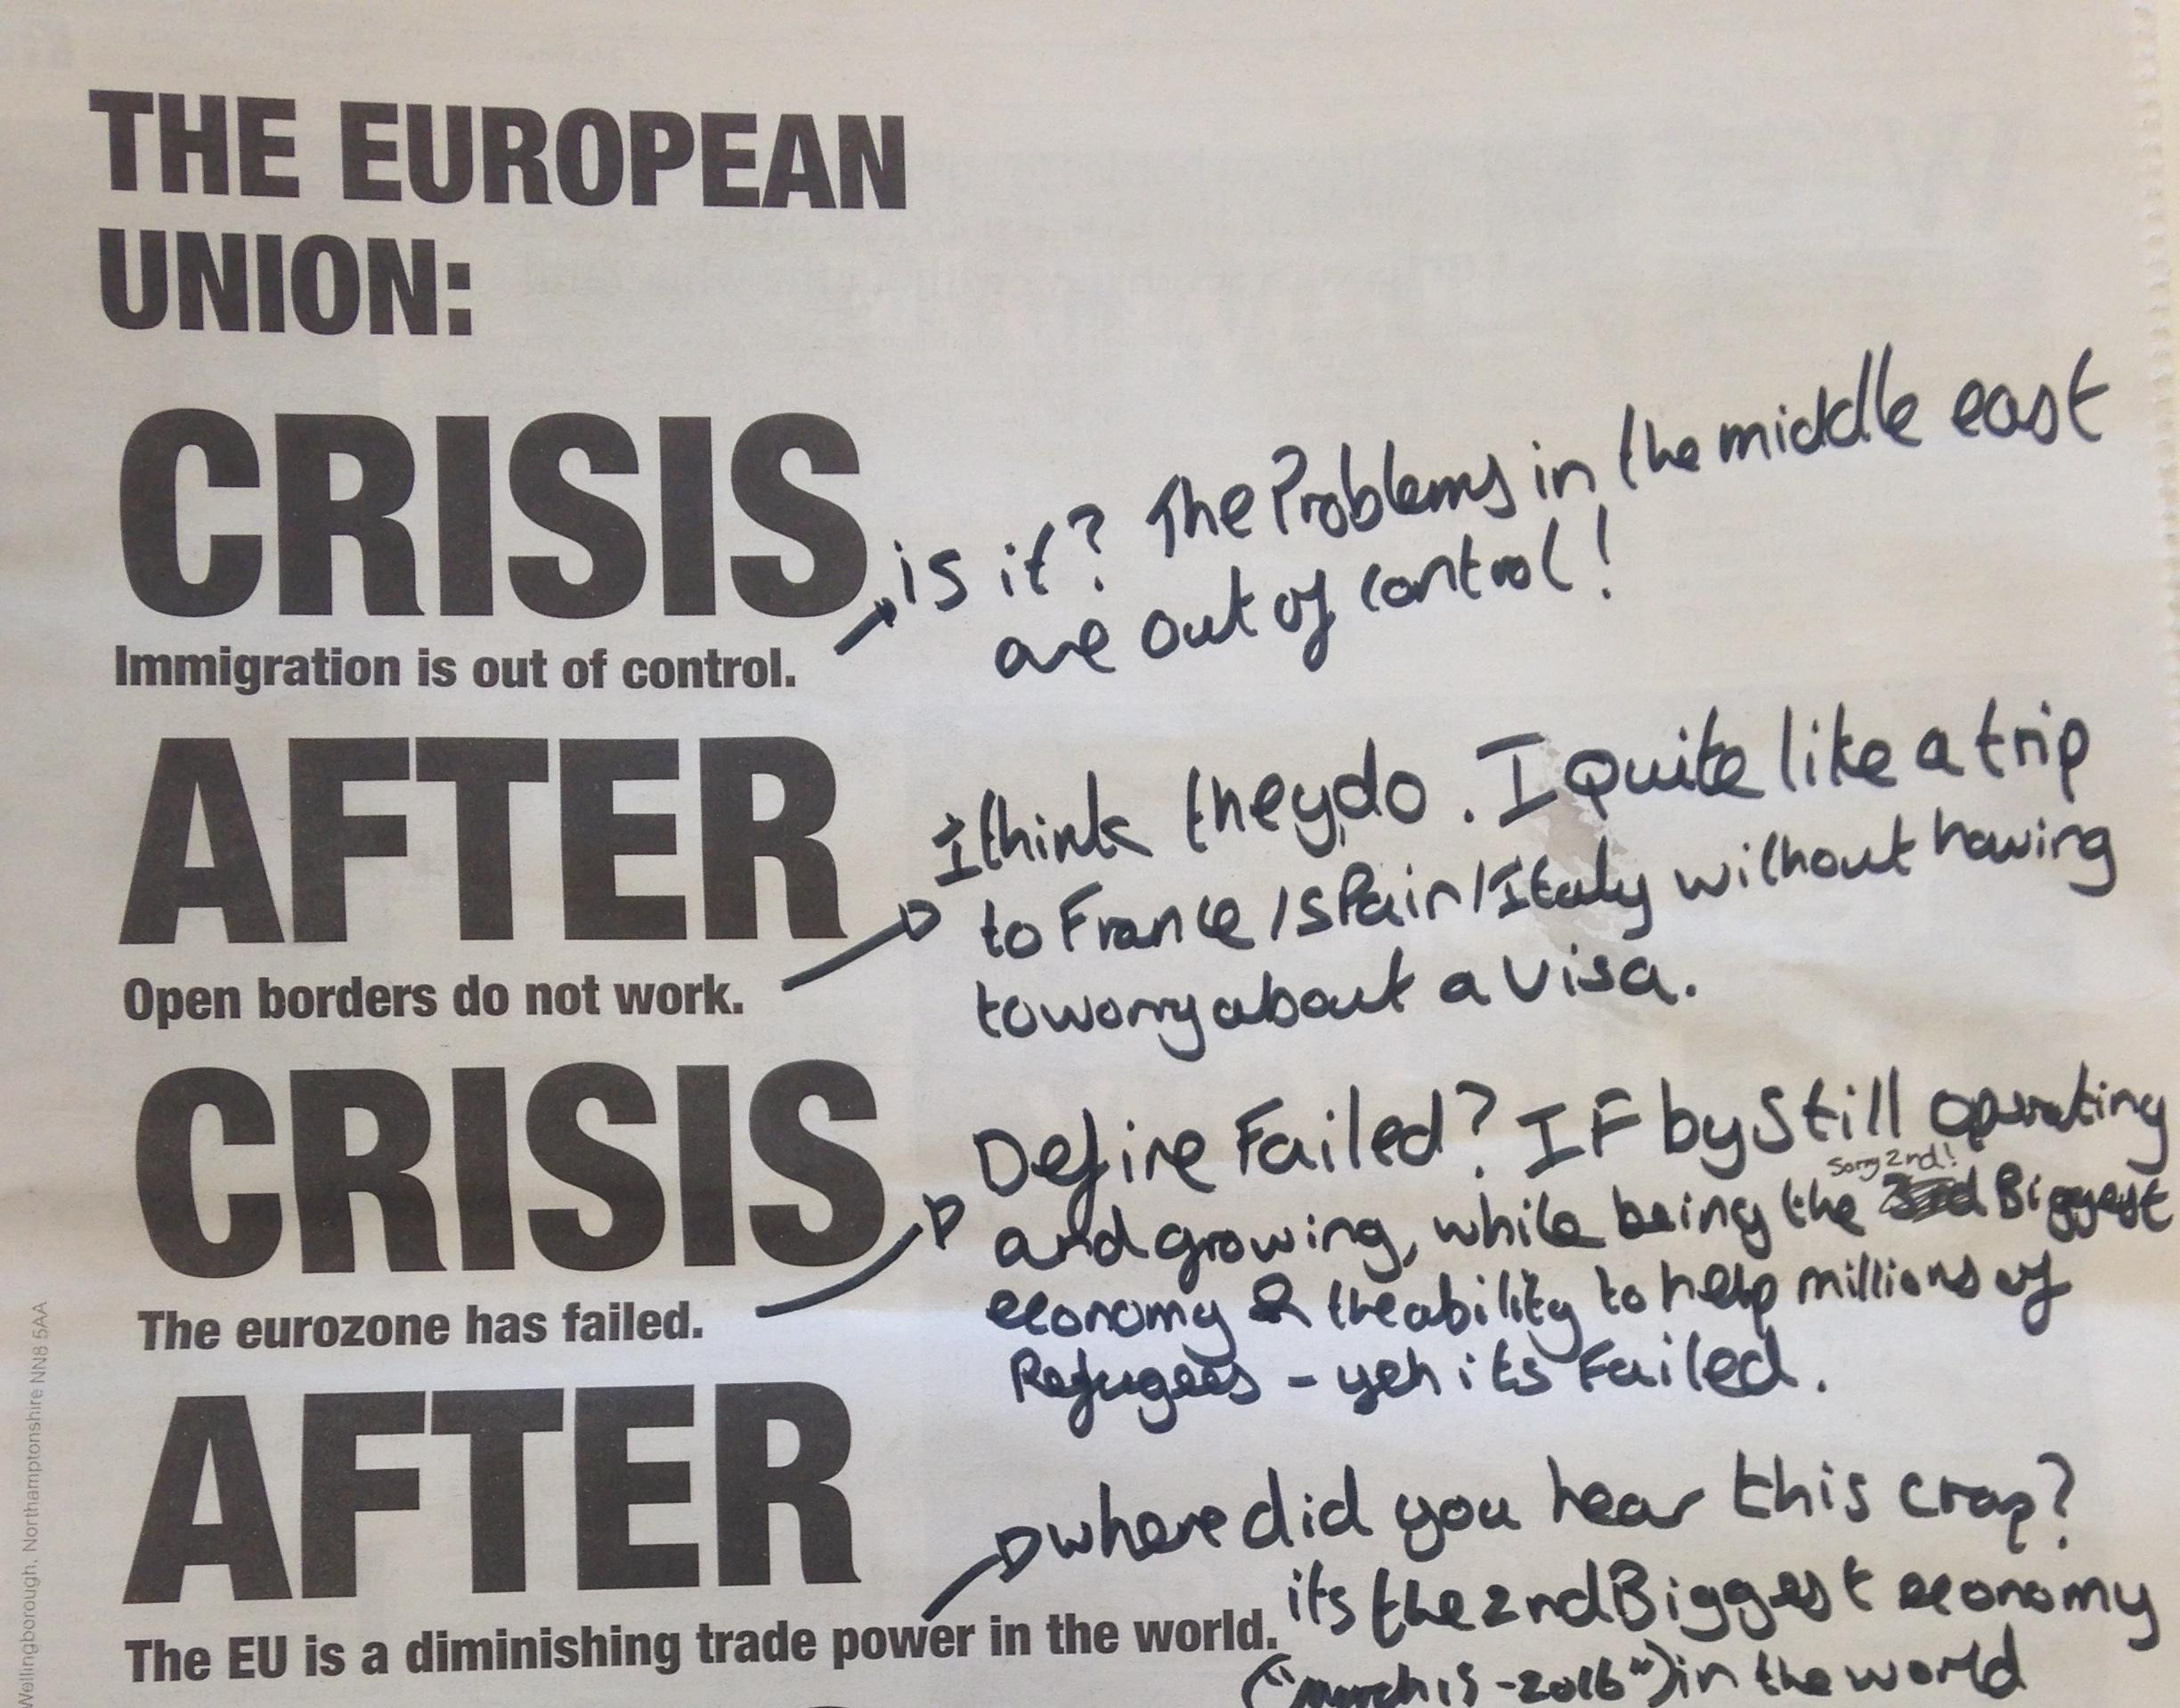 THE EUROPEAN
UNION:
CRISIS
Immigration is out of control.
is it? The Problems in the middle east
are out of control!
AFTER
Open borders do not work.
I think they do. I quite like a trip
to France/Spain/Italy without having
to worry about a visa.
CRISIS
The eurozone has failed.
Define Failed? IF by still operating
sorry 2nd!
and growing, while being the Biggest
economy & the ability to help millions of
Refugees - yeh its Failed.
AFTER
The EU is a diminishing trade power in the world.
where did you hear this crap?
its the 2nd Biggest economy
("march 15 -2016") in the world
Wellingborough, Northamptonshire NN8 5AA